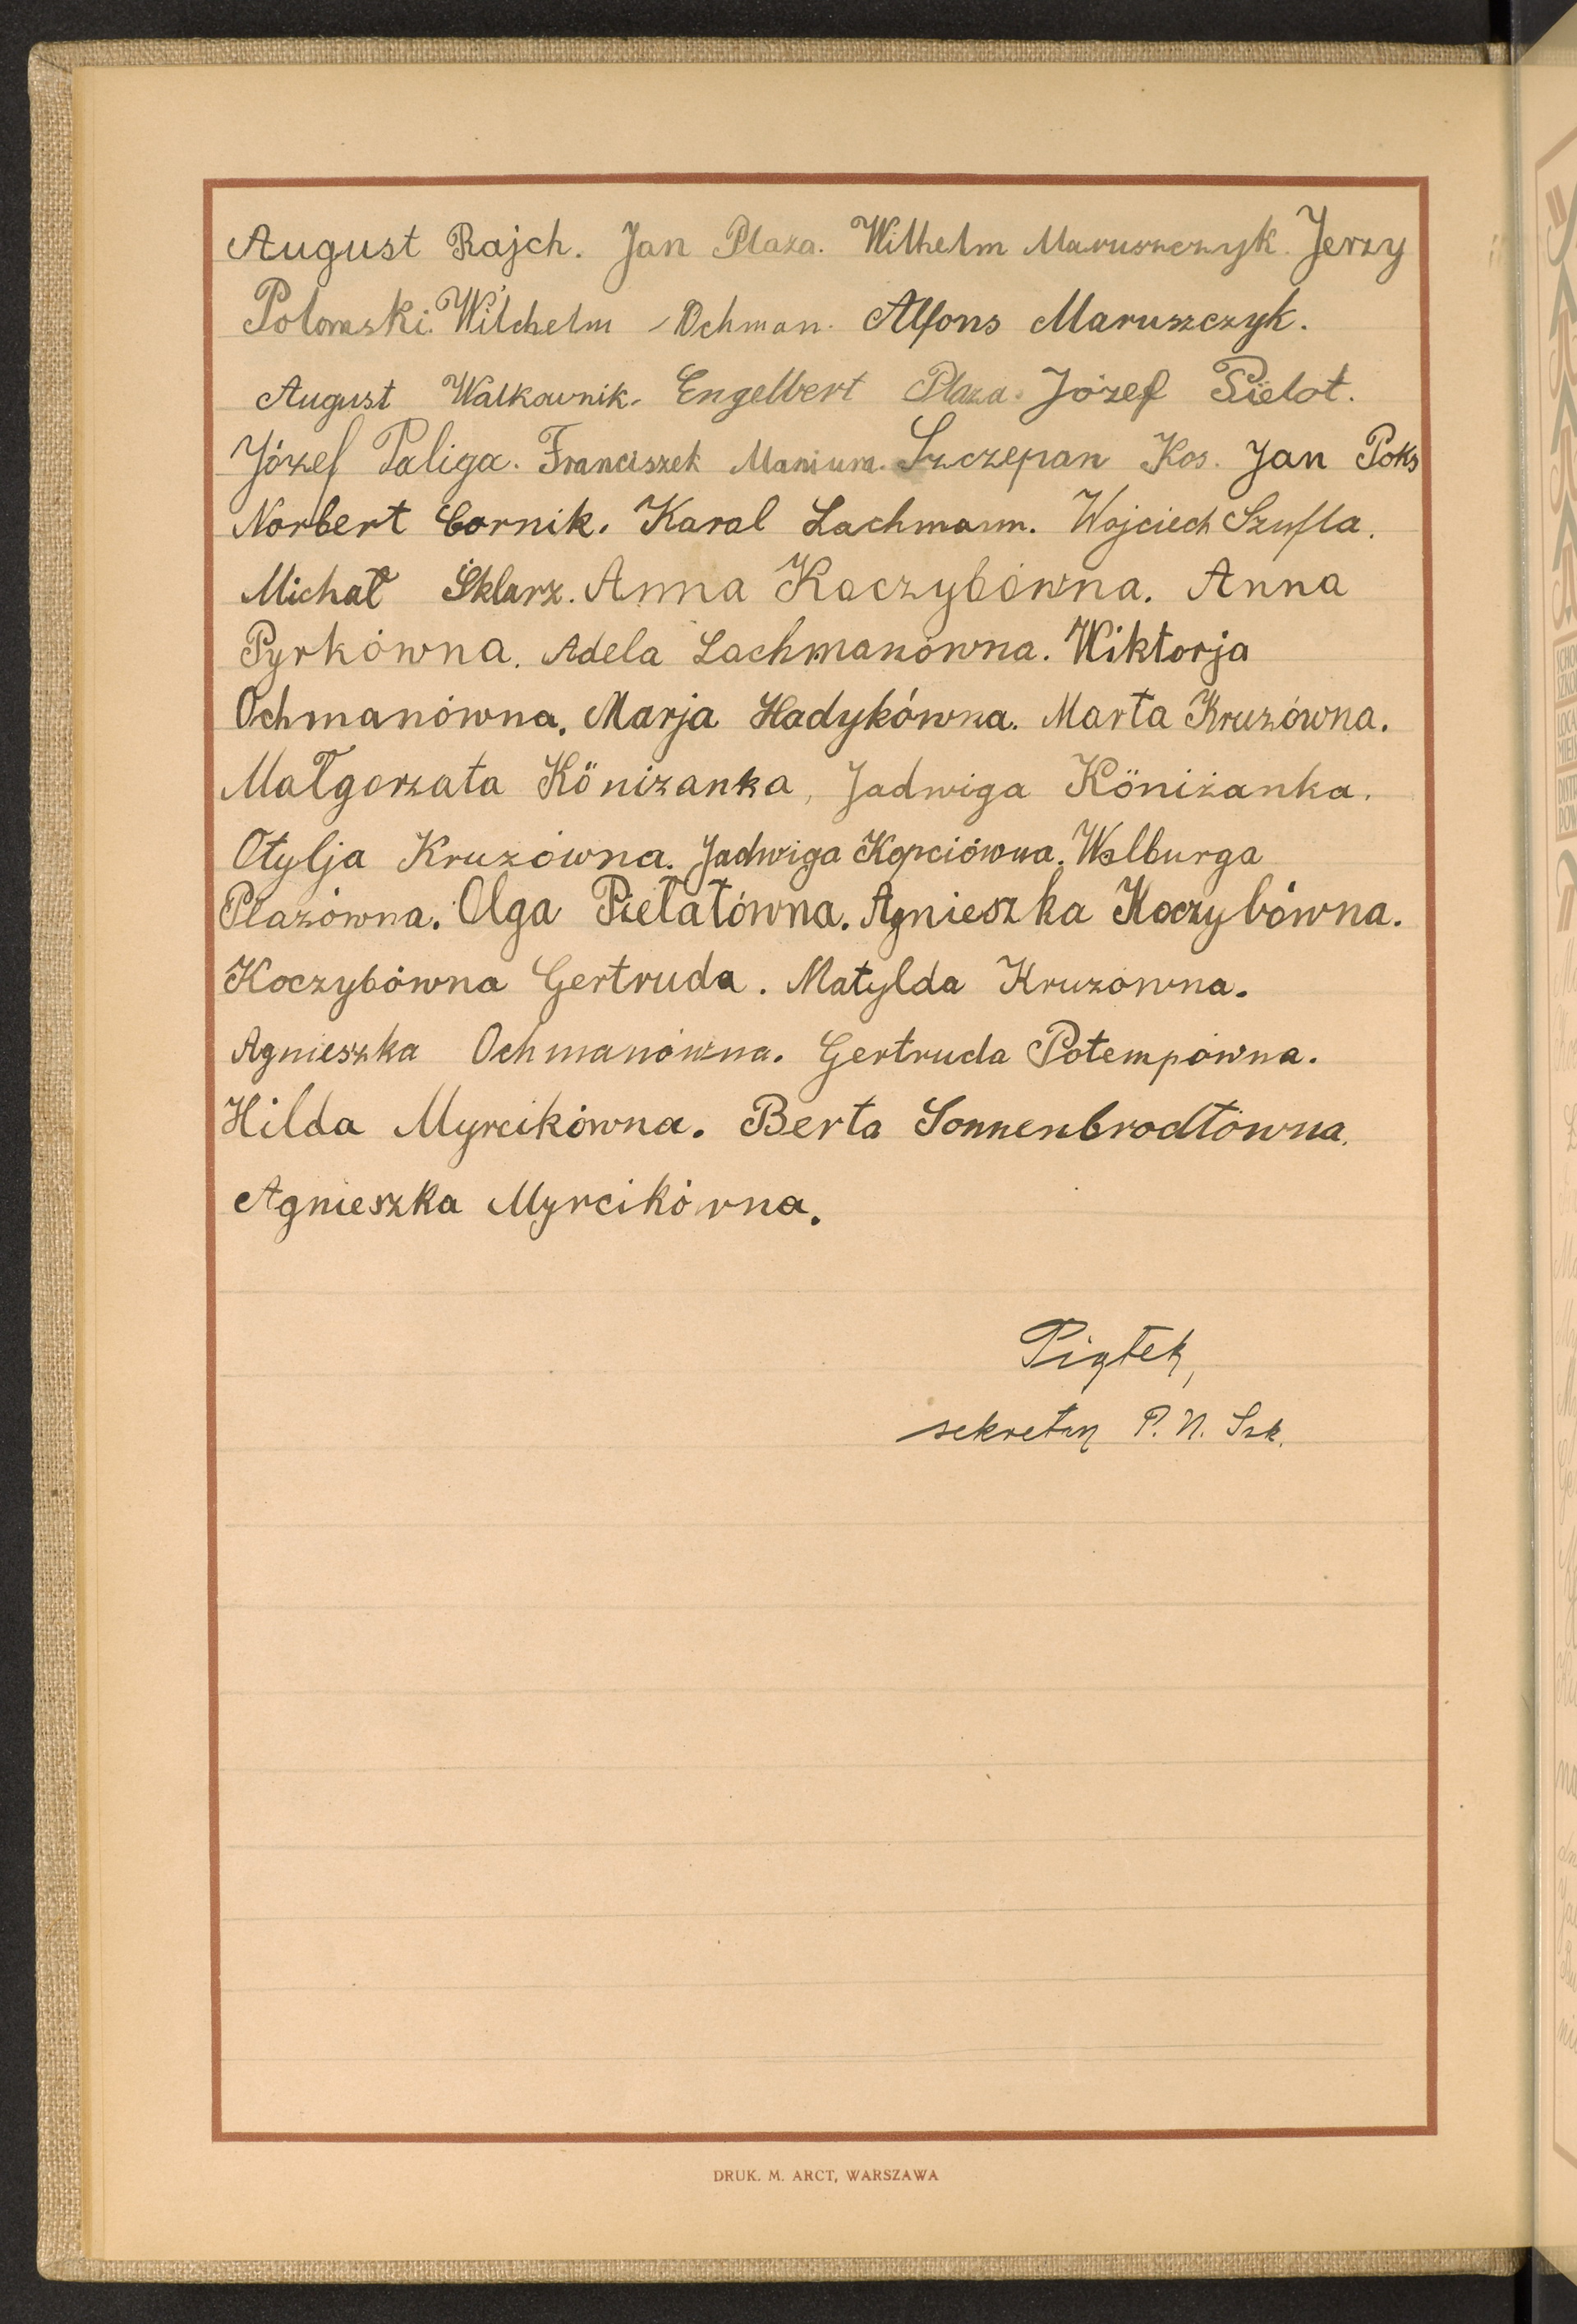 August Rajch. Jan Plaza. Wilhelm Maruszczyk. Jerzy
Polomski. Wilchelm Ochman. Alfons Maruszczyk.
August Walkownik. Engelbert Plaza. Józef Pielot.
Józef Paliga. Franciszek Maniura. Szczepan Kos. Jan Poks
Norbert Cornik. Karal Lachmann. Wojciech Szufla.
Michał Sklarz. Anna Koczybówna. Anna
Pyrkówna. Adela Lachmanówna. Wiktorja
Ochmanówna. Marja Hadykówna. Marta Kruzówna.
Małgorzata Könizanka, Jadwiga Köniżanka.
Otylja Kruzówna. Jadwiga Kopciówna. Walburga
Plazówna. Olga Piełatówna. Agnieszka Koczybówna.
Koczybówna Gertruda. Matylda Kruzówna.
Agnieszka Ochmanówna. Gertruda Potempówna.
Hilda Myrcikówna. Berta Sonnenbrodtówna.
Agnieszka Myrcikówna.
Piątek,
sekretarz P. N. Szk.
DRUK. M. ARCT, WARSZAWA